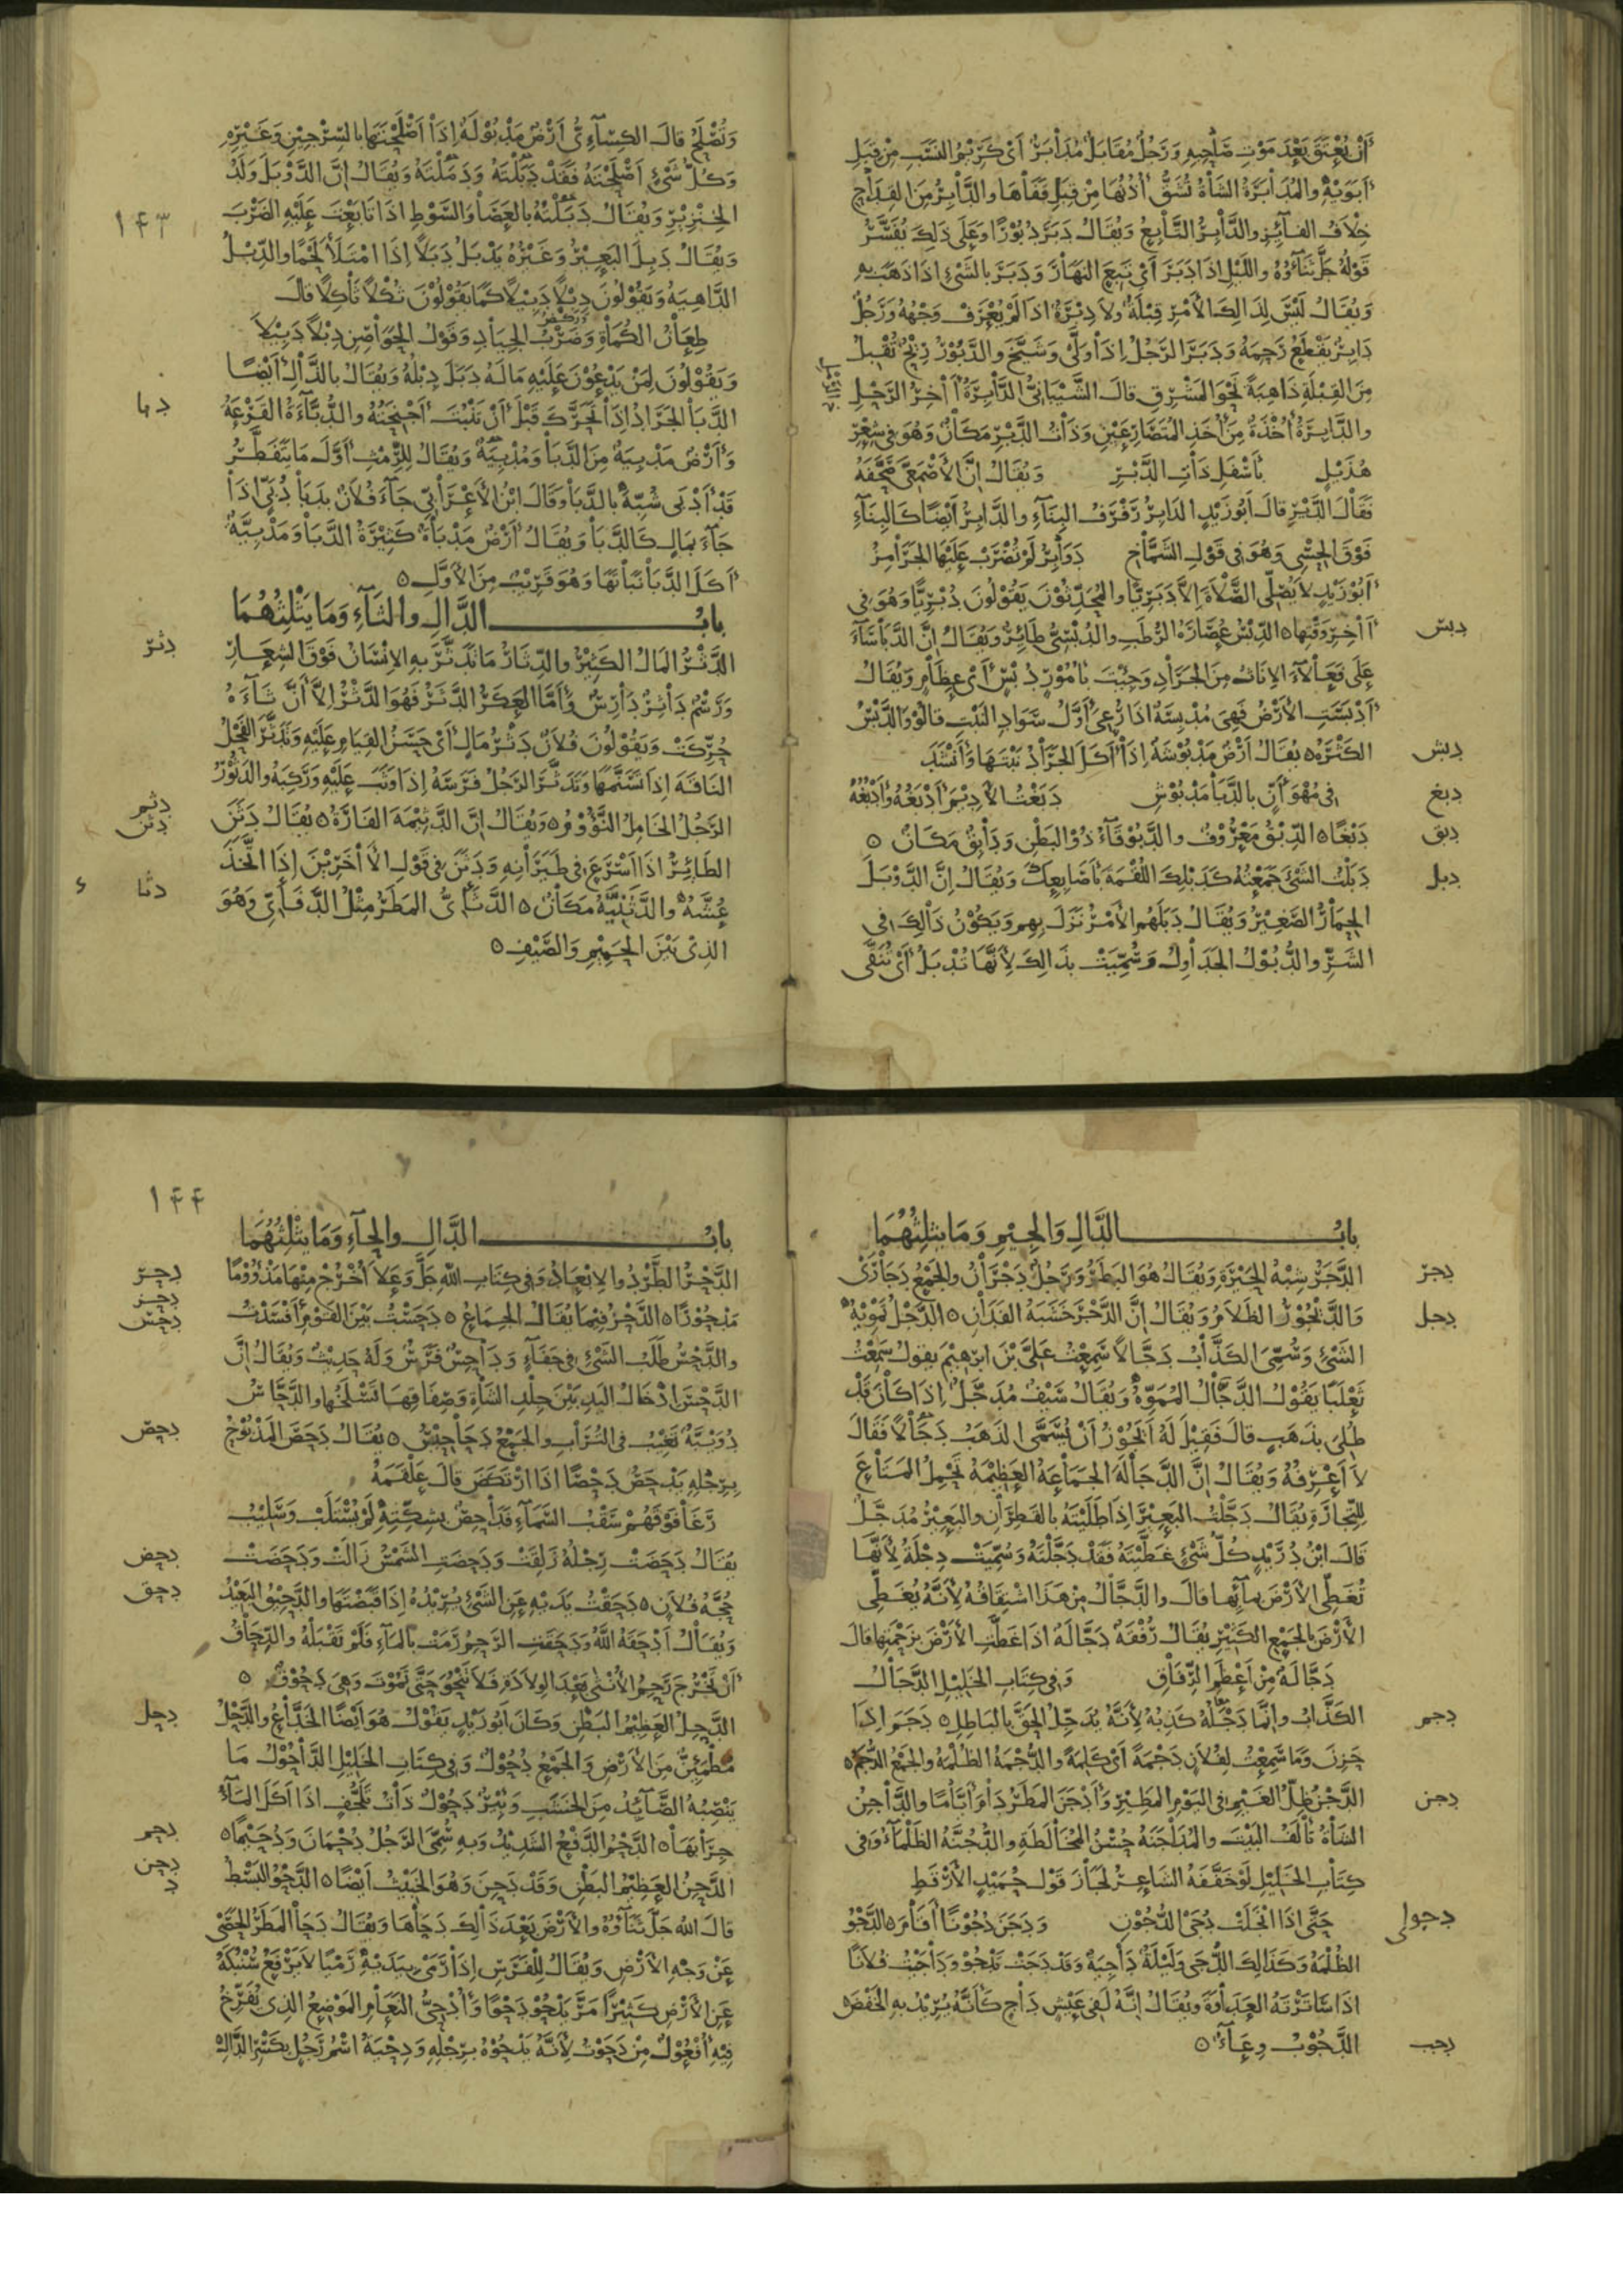 أن يُعْتَقَ بَعْدَ مَوْتِ صَاحِبِهِ وَرَجُلٌ مُقَابَلٌ مُدَابَرٌ أى كَرِيمُ النَّسَبِ مِنْ قِبَلِ
أَبَوَيْهِ والمُدَابَرَةُ الشَّاةُ تُشَقُّ أُذُنُهَا مِنْ قِبَلِ قَفَاهَا والدَّابِرُ مِنَ القِدَاحِ
خِلَافُ الفَائِزِ والدَّابِرُ التَّابِعُ وَيُقَالُ دَبَرَ دُبُورًا وَعَلَى ذَلِكَ يُفَسَّرُ
قَوْلُهُ جَلَّ ثَنَاؤُهُ واللَّيْلِ إِذَا دَبَرَ أَىْ تَبِعَ النَّهَارَ وَدَبَرَ بِالشَّىْءِ إِذَا ذَهَبَ بِهِ
وَيُقَالُ لَيْسَ لِذَلِكَ الأَمْرِ قِبْلَةٌ ولَا دِبْرَةٌ إِذَا لَمْ يُعْرَفْ وَجْهُهُ وَرَجُلٌ
دَابِرٌ يَقْطَعُ رَحِمَهُ وَدَبَرَ الرَّجُلُ إِذَا وَلَّى وَشَيَّخَ والدَّبُورُ رِيْحٌ تُقْبِلُ
مِنَ القِبْلَةِ ذَاهِبَةً نَحْوَ المَشْرِقِ قَالَ الشَّيْبَانِىُّ الدَّابِرَةُ آخِرُ الرَّمْلِ
والدَّابِرَةُ أُخْذَةٌ مِنْ أُخَذِ المُتَصَارِعَيْنِ وَذَاتُ الدَّبْرِ مَكَانٌ وَهُوَ فى شِعْرِ
هُذَيْلٍ بِأَسْفَلِ ذَاتِ الدَّبْرِ وَيُقَالُ إِنَّ الأَصْمَعِىَّ صَحَّفَهُ
فَقَالَ الدَّيْرِ قَالَ أَبُو زَيْدٍ الدَابِرُ رَفْرَفُ البِنَاءِ والدَّابِرُ أَيْضًا كَالبِنَاءِ
فَوْقَ الحِسْىِ وَهُوَ فى قَوْلِ الشَّمَّاخِ دَوَابِرُ لَمْ تُضْرَبْ عَلَيْهَا الجَرَامِزُ
أَبُو زَيْدٍ لَا يُصَلِّى الصَّلَاةَ إِلَّا دَبَرِيًّا والمُحَدِّثُوْنَ يَقُوْلُوْنَ دُبْرِيًّا وَهُوَ فى
دبس آخِرِ وَقْتِهَا ٥ الدِّبْسُ عُصَارَةُ الرُّطَبِ والدُّبْسِىُّ طَائِرٌ وَيُقَالُ إِنَّ الدَّبَاسَاءَ
عَلَى فَعَالَاءَ الإِنَاثُ مِنَ الجَرَادِ وَجِئْتَ بِأُمُوْرٍ دُبْسٍ أَىْ عِظَامٍ وَيُقَالُ
أَدْبَسَتِ الأَرْضُ فَهِىَ مُدْبِسَةٌ إِذَا رُعِىَ أَوَّلُ سَوَادِ النَّبْتِ قَالُوْا والدَّبْسُ
دبش الكَثْرَةُ ٥ يُقَالُ أَرْضٌ مَدْبُوْشَةٌ إِذَا أَكَلَ الجَرَادُ نَبْتَهَا وأَنْشَدَ
دبغ فى مُهْوَأَنٍّ بِالدَّبَا مَدْبُوْشِ دَبَغْتُ الأَدِيْمَ أَدْبَغُهُ وأَدْبُغُهُ
دبق دَبْغًا ٥ الدِّبْقُ مَعْرُوْفٌ والدَّبُوْقَاءُ ذُوْ البَطْنِ وَدَابِقٌ مَكَانٌ ٥
دبل دَبَلْتُ الشَّىْءَ جَمَعْتُهُ كَدَبْلِكَ اللُّقْمَةَ بِأَصَابِعِكَ وَيُقَالُ إِنَّ الدَّوْبَلَ
الحِمَارُ الصَّغِيْرُ وَيُقَالُ دَبَلَهُمُ الأَمْرُ نَزَلَ بِهِمْ وَيَكُوْنُ ذَالِكَ فى
الشَّرِّ والدُّبُوْلُ الجَدَاوِلُ وَسُمِّيَتْ بِذَالِكَ لِأَنَّهَا تُدْبَلُ أَىْ تُنَقَّى
١٤٣
وَتُصْلَحُ قَالَ الكِسَائِىُّ أَرْضٌ مَدْبُوْلَةٌ إِذَا أَصْلَحْتَهَا بِالسِّرْجِيْنِ وَغَيْرِهِ
وَكُلُّ شَىْءٍ أَصْلَحْتَهُ فَقَدْ دَبَلْتَهُ وَدَمَلْتَهُ وَيُقَالُ إِنَّ الدَّوْبَلَ وَلَدُ
الخِنْزِيْرِ وَيُقَالُ دَبَلْتُهُ بِالعَصَا وَالسَّوْطِ إِذَا تَابَعْتَ عَلَيْهِ الضَّرْبَ
وَيُقَالُ دَبِلَ البَعِيْرُ وَغَيْرُهُ يَدْبَلُ دَبَلًا إِذَا امْتَلَأَ لَحْمًا والدِّبْلُ
الدَّاهِيَةُ وَيَقُوْلُوْنَ دِبْلًا دَبِيْلًا كَمَا يَقُوْلُوْنَ ثُكْلًا ثَاكِلًا قَالَ
طِعَانُ الكُمَاةِ وَضَرْبُ الجِيَادِ وَقَوْلُ الحَوَاضِنِ دِبْلًا دَبِيْلَا
وَيَقُوْلُوْنَ لِمَنْ يَدْعُوْنَ عَلَيْهِ مَالَهُ دَبَلَ دِبْلُهُ وَيُقَالُ بِالذَّالِ أَيْضًا
دبا الدَّبَا الجَرَادُ إِذَا تَحَرَّكَ قَبْلَ أَنْ تَنْبُتَ أَجْنِحَتُهُ والدُّبَّاءَةُ القَرْعَةُ
وأَرْضٌ مَدْبِيَةٌ مِنَ الدَّبَا وَمُدْبِيَةٌ وَيُقَالُ لِلرِّمْثِ أَوَّلَ مَا يَتَفَطَّرُ
قَدْ أَدْبَى شُبِّهَ بِالدَّبَا وَقَالَ ابْنُ الأَعْرَابِىِّ جَاءَ فُلَانٌ بِدَبَا دُبَىٍّ إِذَا
جَاءَ بِمَالٍ كَالدَّبَا وَيُقَالُ أَرْضٌ مَدْبَاةٌ كَثِيْرَةُ الدَّبَا وَمَدْبِيَّةٌ
أَكَلَ الدَّبَا نَبَاتَهَا وَهُوَ قَرِيْبٌ مِنَ الأَوَّلِ ٥
بابُ الدَّالِ والثَاءِ وَمَا يَثْلِثُهُمَا
دثر الدَّثْرُ المَالُ الكَثِيْرُ والدِّثَارُ مَا تَدَثَّرَ بِهِ الإِنْسَانُ فَوْقَ الشِّعَارِ
وَرَسْمٌ دَاثِرٌ دَارِسٌ وأَمَّا العَكَرُ الدَّثَرُ فَهُوَ الدَّثْرُ إِلَّا أَنَّ ثَاءَهُ
حُرِّكَتْ وَيَقُوْلُوْنَ فُلَانٌ دَثْرُ مَالٍ أَىْ حَسَنُ القِيَامِ عَلَيْهِ وَتَدَثَّرَ الفَحْلُ
النَاقَةَ إِذَا تَسَنَّمَهَا وَتَدَثَّرَ الرَّجُلُ فَرَسَهُ إِذَا وَثَبَ عَلَيْهِ وَرَكِبَهُ والدَّثُوْرُ
دثم دثن الرَّجُلُ الخَامِلُ النَّؤُوْمُ ٥ وَيُقَالُ إِنَّ الدَّثِيْمَةَ الفَارَةُ ٥ يُقَالُ دَثَّنَ
الطَائِرُ إِذَا أَسْرَعَ فى طَيَرَانِهِ وَدَثَّنَ فى قَوْلِ الأَخَرِيْنَ إِذَا اتَّخَذَ
دثا عُشَّهُ والدَّثِنِيَّةُ مَكَانٌ ٥ الدَّثَائِىُّ المَطَرُ مِثْلُ الدَّفَائِىِّ وَهُوَ
الَّذِىْ بَيْنَ الحَمِيْمِ وَالصَّيْفِ ٥
بابُ الدَّالِ وَالجِيْمِ وَمَا يثلِثُهُمَا
دجر الدَّجَرُ شِبْهُ الحَيْرَةِ وَيُقَالُ هُوَ البَطَرُ وَرَجُلٌ دَجْرَانُ والجَمْعُ دَجَارَى
دجل وَالدَّيْجُوْرُ الظَلَامُ وَيُقَالُ إِنَّ الدَّجْرَ خَشَبَةُ الفَدَّانِ ٥ الدَّجْلُ تَمْوِيْهُ
الشَّىْءِ وَسُمِّىَ الكَذَّابُ دَجَّالًا سَمِعْتُ عَلِىَّ بْنَ ابْرٰهِيْمَ يقولُ سَمِعْتُ
ثَعْلَبًا يَقُوْلُ الدَّجَّالُ المُمَوِّهُ وَيُقَالُ سَيْفٌ مُدَجَّلٌ إِذَا كَانَ قَدْ
طُلِىَ بِذَهَبٍ قَالَ فَقِيْلَ لَهُ أَيَجُوْزُ أَنْ يُسَمَّى الذَهَبُ دَجَّالًا فَقَالَ
لَا أَعْرِفُهُ وَيُقَالُ إِنَّ الدَّجَّالَةَ الجَمَاعَةُ العَظِيْمَةُ تَحْمِلُ المَتَاعَ
لِلتِّجَارَةِ وَيُقَالُ دَجَّلْتُ البَعِيْرَ إِذَا طَلَيْتَهُ بِالقَطِرَانِ والبَعِيْرُ مُدَجَّلٌ
قَالَ ابْنُ دُرَيْدٍ كُلُّ شَىْءٍ غَطَّيْتَهُ فَقَدْ دَجَّلْتَهُ وَسُمِّيَتْ دِجْلَةُ لِأَنَّهَا
تُغَطِّى الأَرْضَ بِمَائِهَا قَالَ والدَّجَّالُ مِنْ هَذَا اشْتِقَاقُهُ لِأَنَّهُ يُغَطِّى
الأَرْضَ بِالجَمْعِ الكَثِيْرِ يُقَالُ رُفْقَةٌ دَجَّالَةٌ إِذَا غَطَّتِ الأَرْضَ بِزَحْمَتِهَا قَالَ
دَجَّالَةٌ مِنْ أَعْظَمِ الرِّفَاقِ وَفى كِتَابِ الخَلِيْلِ الدَّجَّالُ
دجم الكَذَّابُ وإِنَّمَا دَجْلُهُ كَذِبُهُ لِأَنَّهُ يُدَجِّلُ الحَقَّ بِالبَاطِلِ ٥ دَجَمَ إِذَا
حَزِنَ وَمَا سَمِعْتُ لِفُلَانٍ دَجْمَةً أَىْ كَلِمَةً والدُّجْمَةُ الظُلْمَةُ والجَمْعُ الدُّجَمُ ٥
دجن الدَّجْنُ ظِلُّ الغَيْمِ فى اليَوْمِ المَطِيْرِ وأَدْجَنَ المَطَرُ دَامَ أَيَّامًا والدَّاجِنُ
الشَاةُ تَأْلَفُ البَيْتَ والمُدَاجَنَةُ حُسْنُ المُخَالَطَةِ والدُّجُنَّةُ الظَّلْمَاءُ وَفى
كِتَابِ الخَلِيْلِ لَوْ خَفَّفَهُ الشَاعِرُ لَجَازَ قَوْلُ حُمَيْدٍ الأَرْقَطِ
دجو لى حَتَّى إِذَا انْجَلَتْ دُجَى الدُّجُوْنِ وَدَجَنَ دُجُوْنًا أَقَامَ ٥ الدَّجْوُ
الظُلْمَةُ وَكَذَلِكَ الدُّجَى وَلَيْلَةٌ دَاجِيَةٌ وَقَدْ دَجَتْ تَدْجُوْ وَدَاجَيْتُ فُلَانًا
إِذَا سَاتَرْتَهُ العَدَاوَةَ وَيُقَالُ إِنَّهُ لَفِى عَيْشٍ دَاجٍ كَأَنَّهُ يُرِيْدُ بِهِ الخَفْضَ ٥
دجب الدَّجُوْبُ وِعَاءٌ ٥
١٤٤
بابُ الدَّالِ والحَاءِ وَمَا يثْلِثُهُمَا
دحر الدَّحْرُ الطَّرْدُ والإِبْعَادُ وَفى كِتَابِ اللهِ جَلَّ وَعَلَا أُخْرُجْ مِنْهَا مَذْؤُوْمًا
دحز دحس مَدْحُوْرًا ٥ الدَّحْزُ فِيْمَا يُقَالُ الجِمَاعُ ٥ دَحَسْتُ بَيْنَ القَوْمِ أَفْسَدْتُ
والدَّحْسُ طَلَبُ الشَّىْءِ فى خَفَاءٍ وَدَاحِسٌ فَرَسٌ وَلَهُ حَدِيْثٌ وَيُقَالُ إِنَّ
الدَّحْسَ إِدْخَالُ اليَدِ بَيْنَ جِلْدِ الشَّاةِ وَصِفَاقِهَا تَسْلَخُهَا والدَّحَّاسُ
دحص دُوَيْبَّةٌ تَغِيْبُ فى التُرَابِ والجَمْعُ دَحَاحِيْسُ ٥ يُقَالُ دَحَصَ المَذْبُوْحُ
بِرِجْلِهِ يَدْحَصُ دَحْصًا إِذَا ارْتَكَضَ قَالَ عَلْقَمَةُ
رَغَا فَوْقَهُمْ سَقْبُ السَّمَاءِ فَدَاحِصٌ بِشِكَّتِهِ لَمْ يُسْتَلَبْ وَسَلِيْبُ
دحض يُقَالُ دَحَضَتْ رِجْلُهُ زَلِقَتْ وَدَحَضَتِ الشَمْسُ زَالَتْ وَدَحَضَتْ
دحق حُجَّةُ فُلَانٍ ٥ دَحَقْتُ يَدَيْهِ عَنِ الشَىْءِ يُرِيْدُهُ إِذَا قَبَضْتَهَا والدَّحِيْقُ البَعِيْدُ
وَيُقَالُ أَدْحَقَهُ اللهُ وَدَحَقَتِ الرَّحِمُ رَمَتْ بِالمَاءِ فَلَمْ تَقْبَلْهُ والدِّحَاقُ
أَنْ تَخْرُجَ رَحِمُ الأُنْثَى بَعْدَ الوِلَادَةِ فَلَا تَنْجُوْ حَتَّى تَمُوْتَ وَهِىَ دَحُوْقٌ ٥
دحل الدَّحِلُ العَظِيْمُ البَطْنِ وَكَانَ أَبُو زَيْدٍ يَقُوْلُ هُوَ أَيْضًا الخَدَّاعُ والدَّحْلُ
مُطْمَئِنٌّ مِنَ الأَرْضِ وَالجَمْعُ دُحُوْلٌ وَفى كِتَابِ الخَلِيْلِ الدَّاحُوْلُ مَا
يَنْصِبُهُ الصَّائِدُ مِنَ الخَشَبِ وَبِئْرٌ دَحُوْلٌ ذَاتُ تَلَجُّفٍ إِذَا أَكَلَ المَاءُ
دحم جِرَابَهَا ٥ الدَّحْمُ الدَّفْعُ الشَدِيْدُ وَبِهِ سُمِّىَ الرَّجُلُ دُحْمَانَ وَدُحَيْمًا ٥
دحن د الدَّحِنُ العَظِيْمُ البَطْنِ وَقَدْ دَحِنَ وَهُوَ الخَبِيْثُ أَيْضًا ٥ الدَّحْوُ البَسْطُ
قَالَ اللهُ جَلَّ ثَنَاؤُهُ والأَرْضَ بَعْدَ ذَالِكَ دَحَاهَا وَيُقَالُ دَحَا المَطَرُ الحَصَى
عَنْ وَجْهِ الأَرْضِ وَيُقَالُ لِلْفَرَسِ إِذَا رَمَى بِيَدَيْهِ رَمْيًا لَا يَرْفَعُ سُنْبُكَهُ
عَنِ الأَرْضِ كَثِيْرًا مَرَّ يَدْحُوْ دَحْوًا وأُدْحِىُّ النَعَامِ المَوْضِعُ الَّذِى يُفَرِّخُ
فِيْهِ أُفْعُوْلٌ مِنْ دَحَوْتُ لِأَنَّهُ يَدْحُوْهُ بِرِجْلِهِ وَدِحْيَةُ اسْمُ رَجُلٍ بِكَسْرِ الدَّالِ